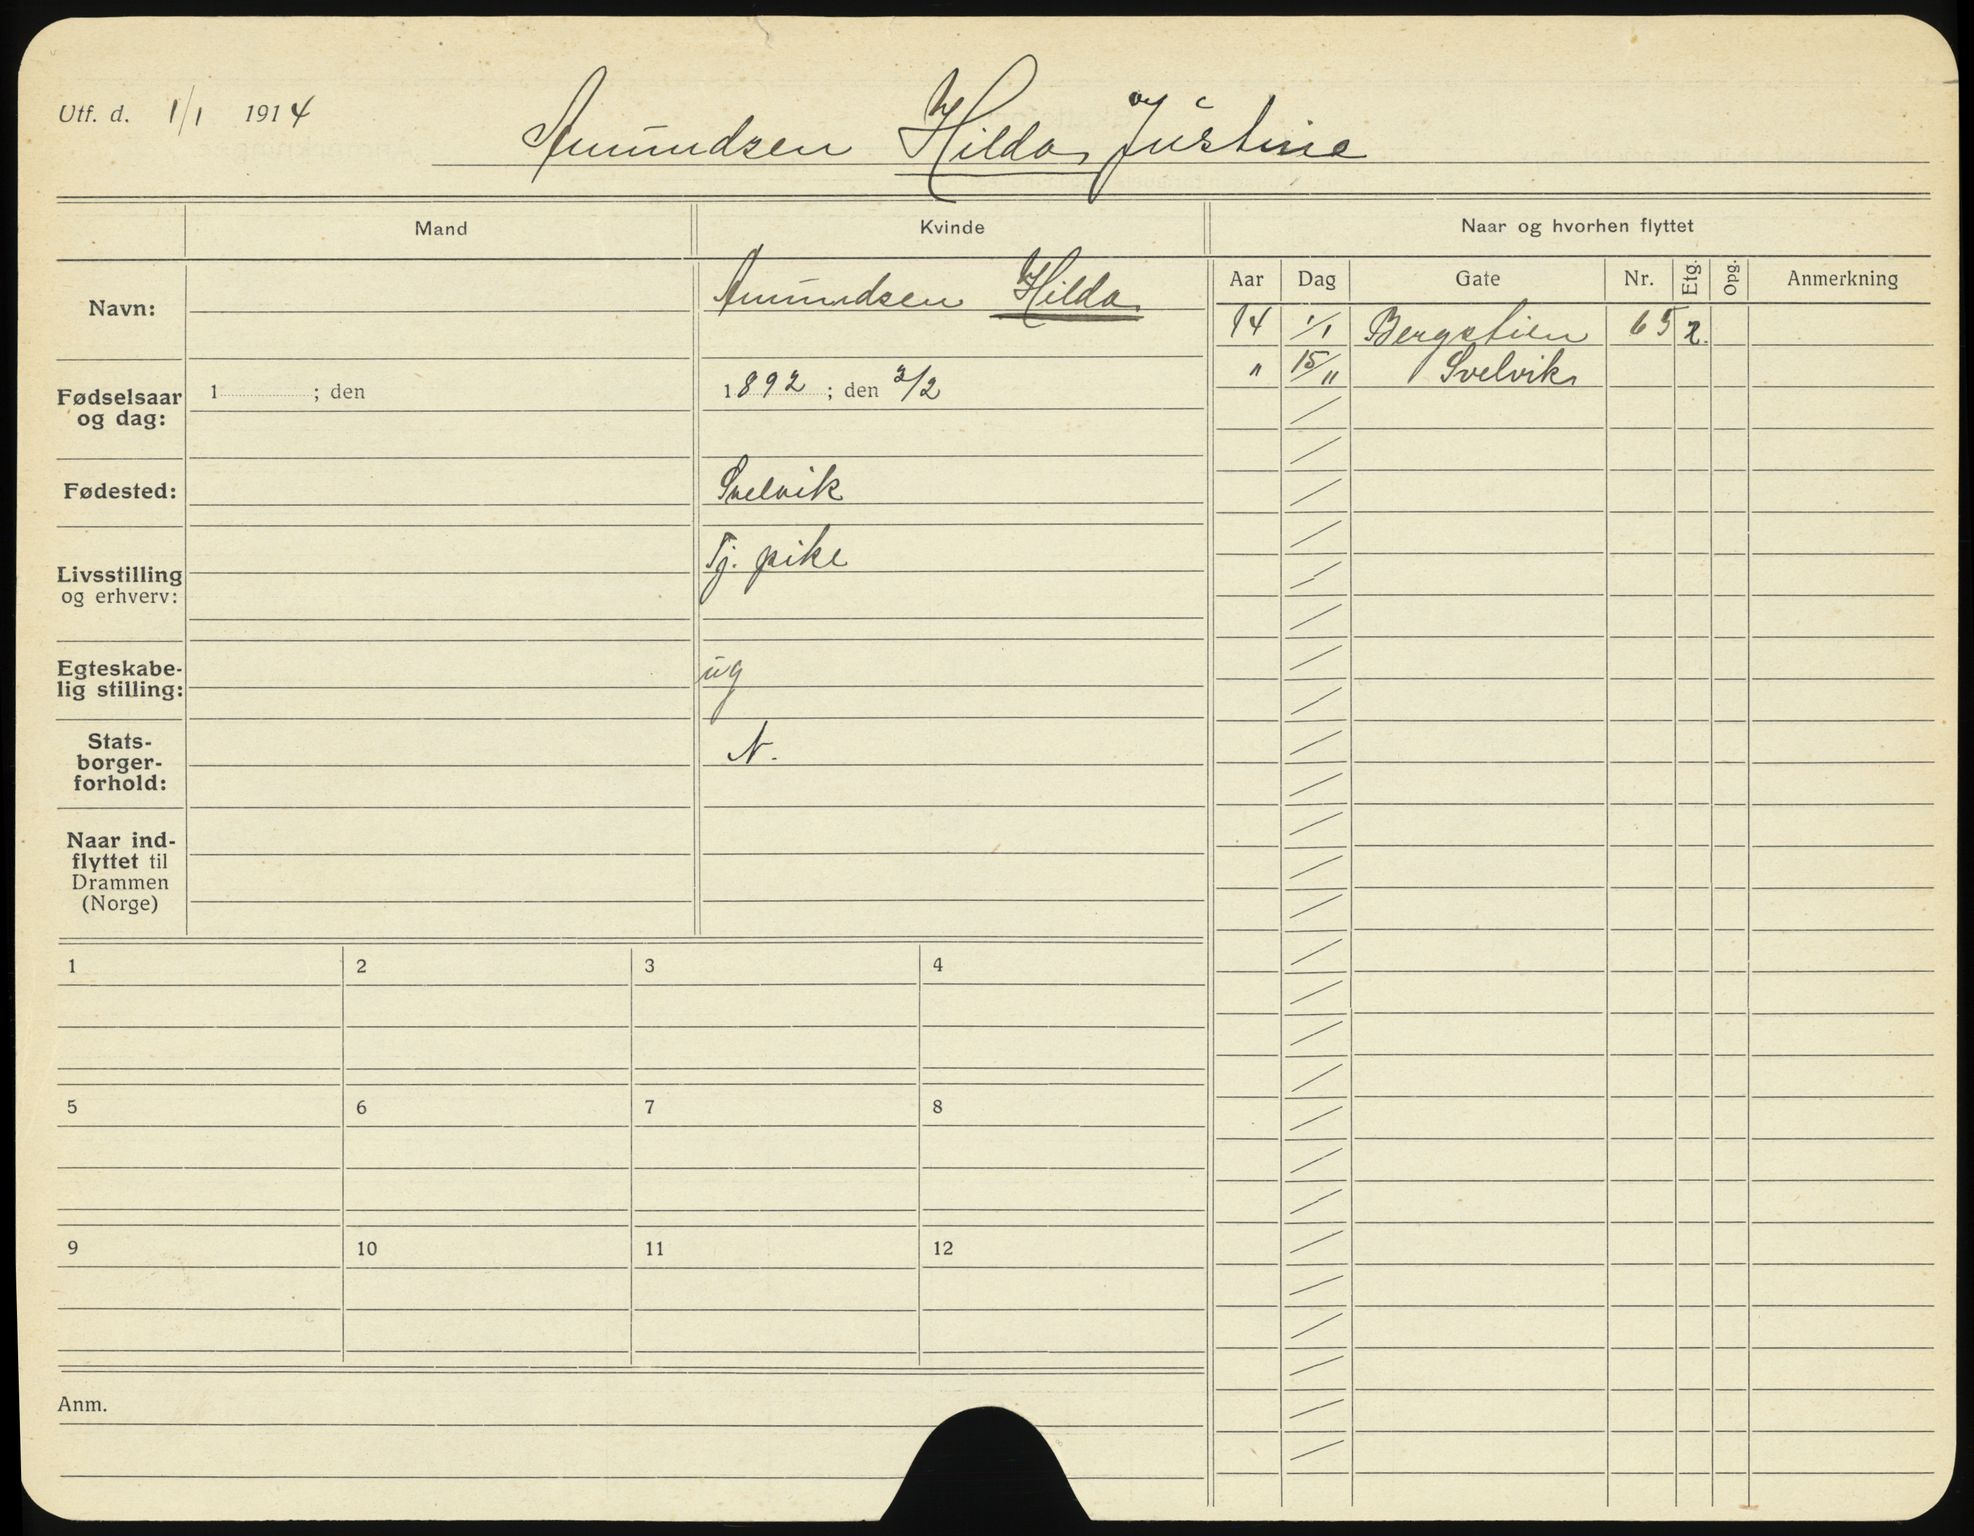 Utf. d. 1/1 1914
Amundsen Hilda Justine
Mand
Kvinde
Naar og hvorhen flyttet
Aar Dag Gate Nr. Etg. Opg. Anmerkning
Navn:
Amundsen Hilda
14 1/1 Bergstien 65 2.
" 15/11 Svelvik
Fødselsaar
og dag:
1 ; den
1892 ; den 2/2
Fødested:
Svelvik
Livsstilling
og erhverv:
Tj. pike
Egteskabe-
lig stilling:
ug
Stats-
borger-
forhold:
N.
Naar ind-
flyttet til
Drammen
(Norge)
1 2 3 4
5 6 7 8
9 10 11 12
Anm.